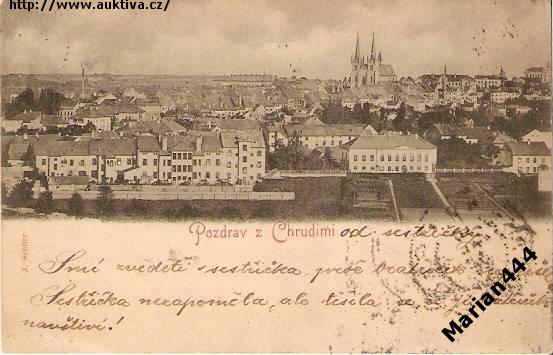 http://www.auktiva.cz/
Pozdrav z Chrudimi od sestřičky
J. Schütz
Smí zvěděti sestřička, proč
Sestřička nezapoměla, ale těšila se
navštíví!
Marian444